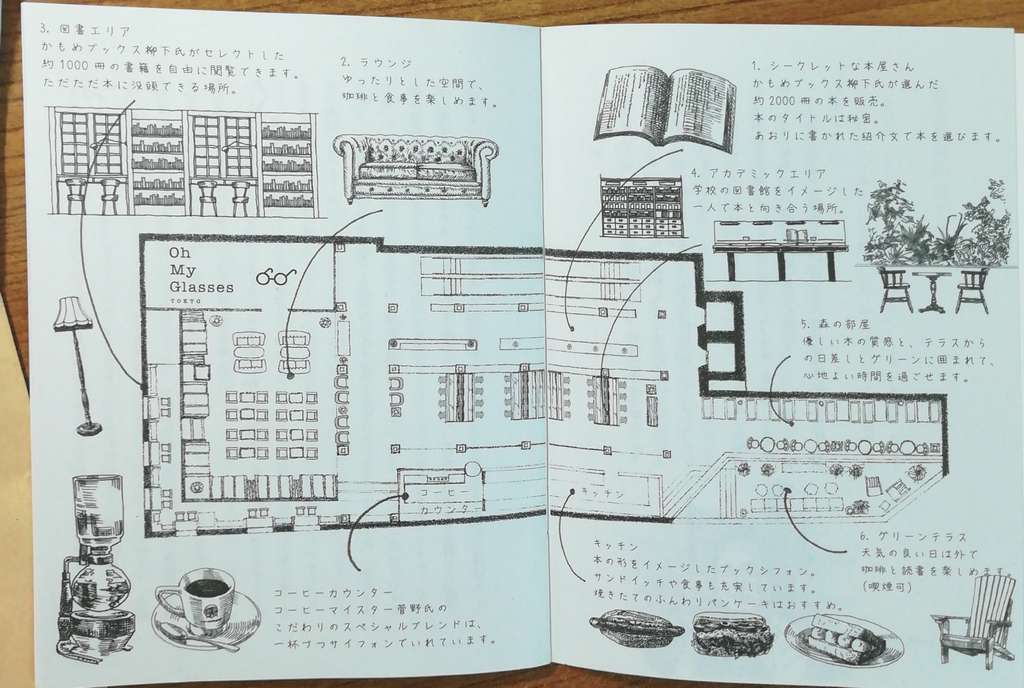 3. 図書エリア
かもめブックス柳下氏がセレクトした
約1000冊の書籍を自由に閲覧できます。
ただただ本に没頭できる場所。
2. ラウンジ
ゆったりとした空間で、
珈琲と食事を楽しめます。
1. シークレットな本屋さん
かもめブックス柳下氏が選んだ
約2000冊の本を販売。
本のタイトルは秘密。
あおりに書かれた紹介文で本を選びます。
4. アカデミックエリア
学校の図書館をイメージした
一人で本と向き合う場所。
Oh
My
Glasses
TOKYO
5. 森の部屋
優しい木の質感と、テラスから
の日差しとグリーンに囲まれて、
心地よい時間を過ごせます。
コーヒー
カウンター
キッチン
6. グリーンテラス
天気の良い日は外で
珈琲と読書を楽しめます。
(喫煙可)
キッチン
本の形をイメージしたブックシフォン。
サンドイッチや食事も充実しています。
焼きたてのふんわりパンケーキはおすすめ。
コーヒーカウンター
コーヒーマイスター菅野氏の
こだわりのスペシャルブレンドは、
一杯づつサイフォンでいれています。